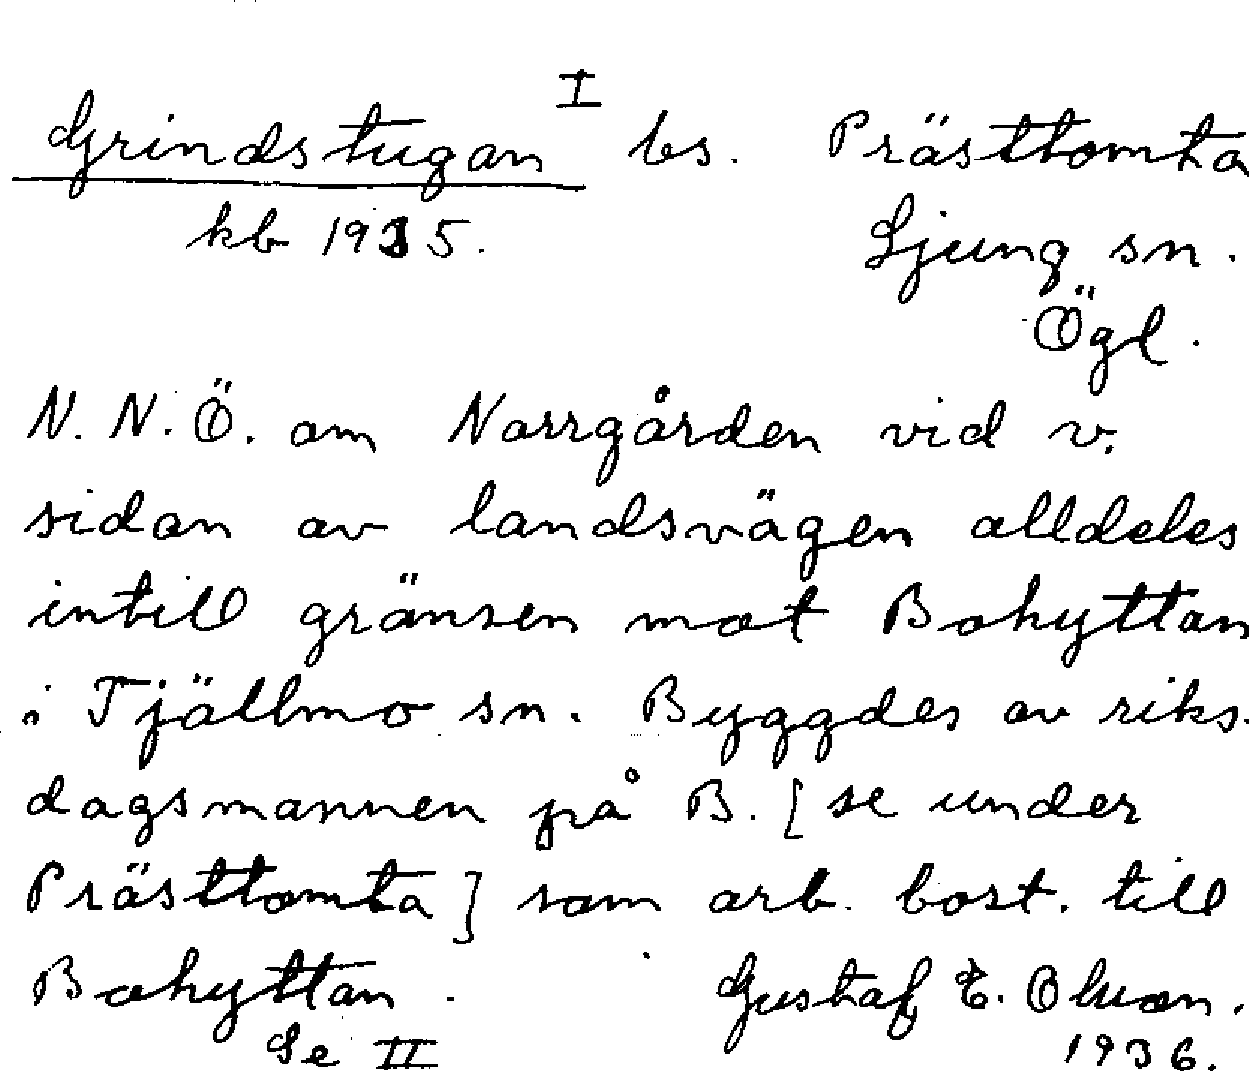 Grindstugan I bs. Prästtomta
kb 1935. Ljung sn.
Ögl.
N. N. Ö. om Norrgården vid v.
sidan av landsvägen alldeles
intill gränsen mot Bohyttan
i Tjällmo sn. Byggdes av riks-
dagsmannen på B. [se under
Prästtomta] som arb. bost. till
Bohyttan. Gustaf E. Olson.
Se II 1936.